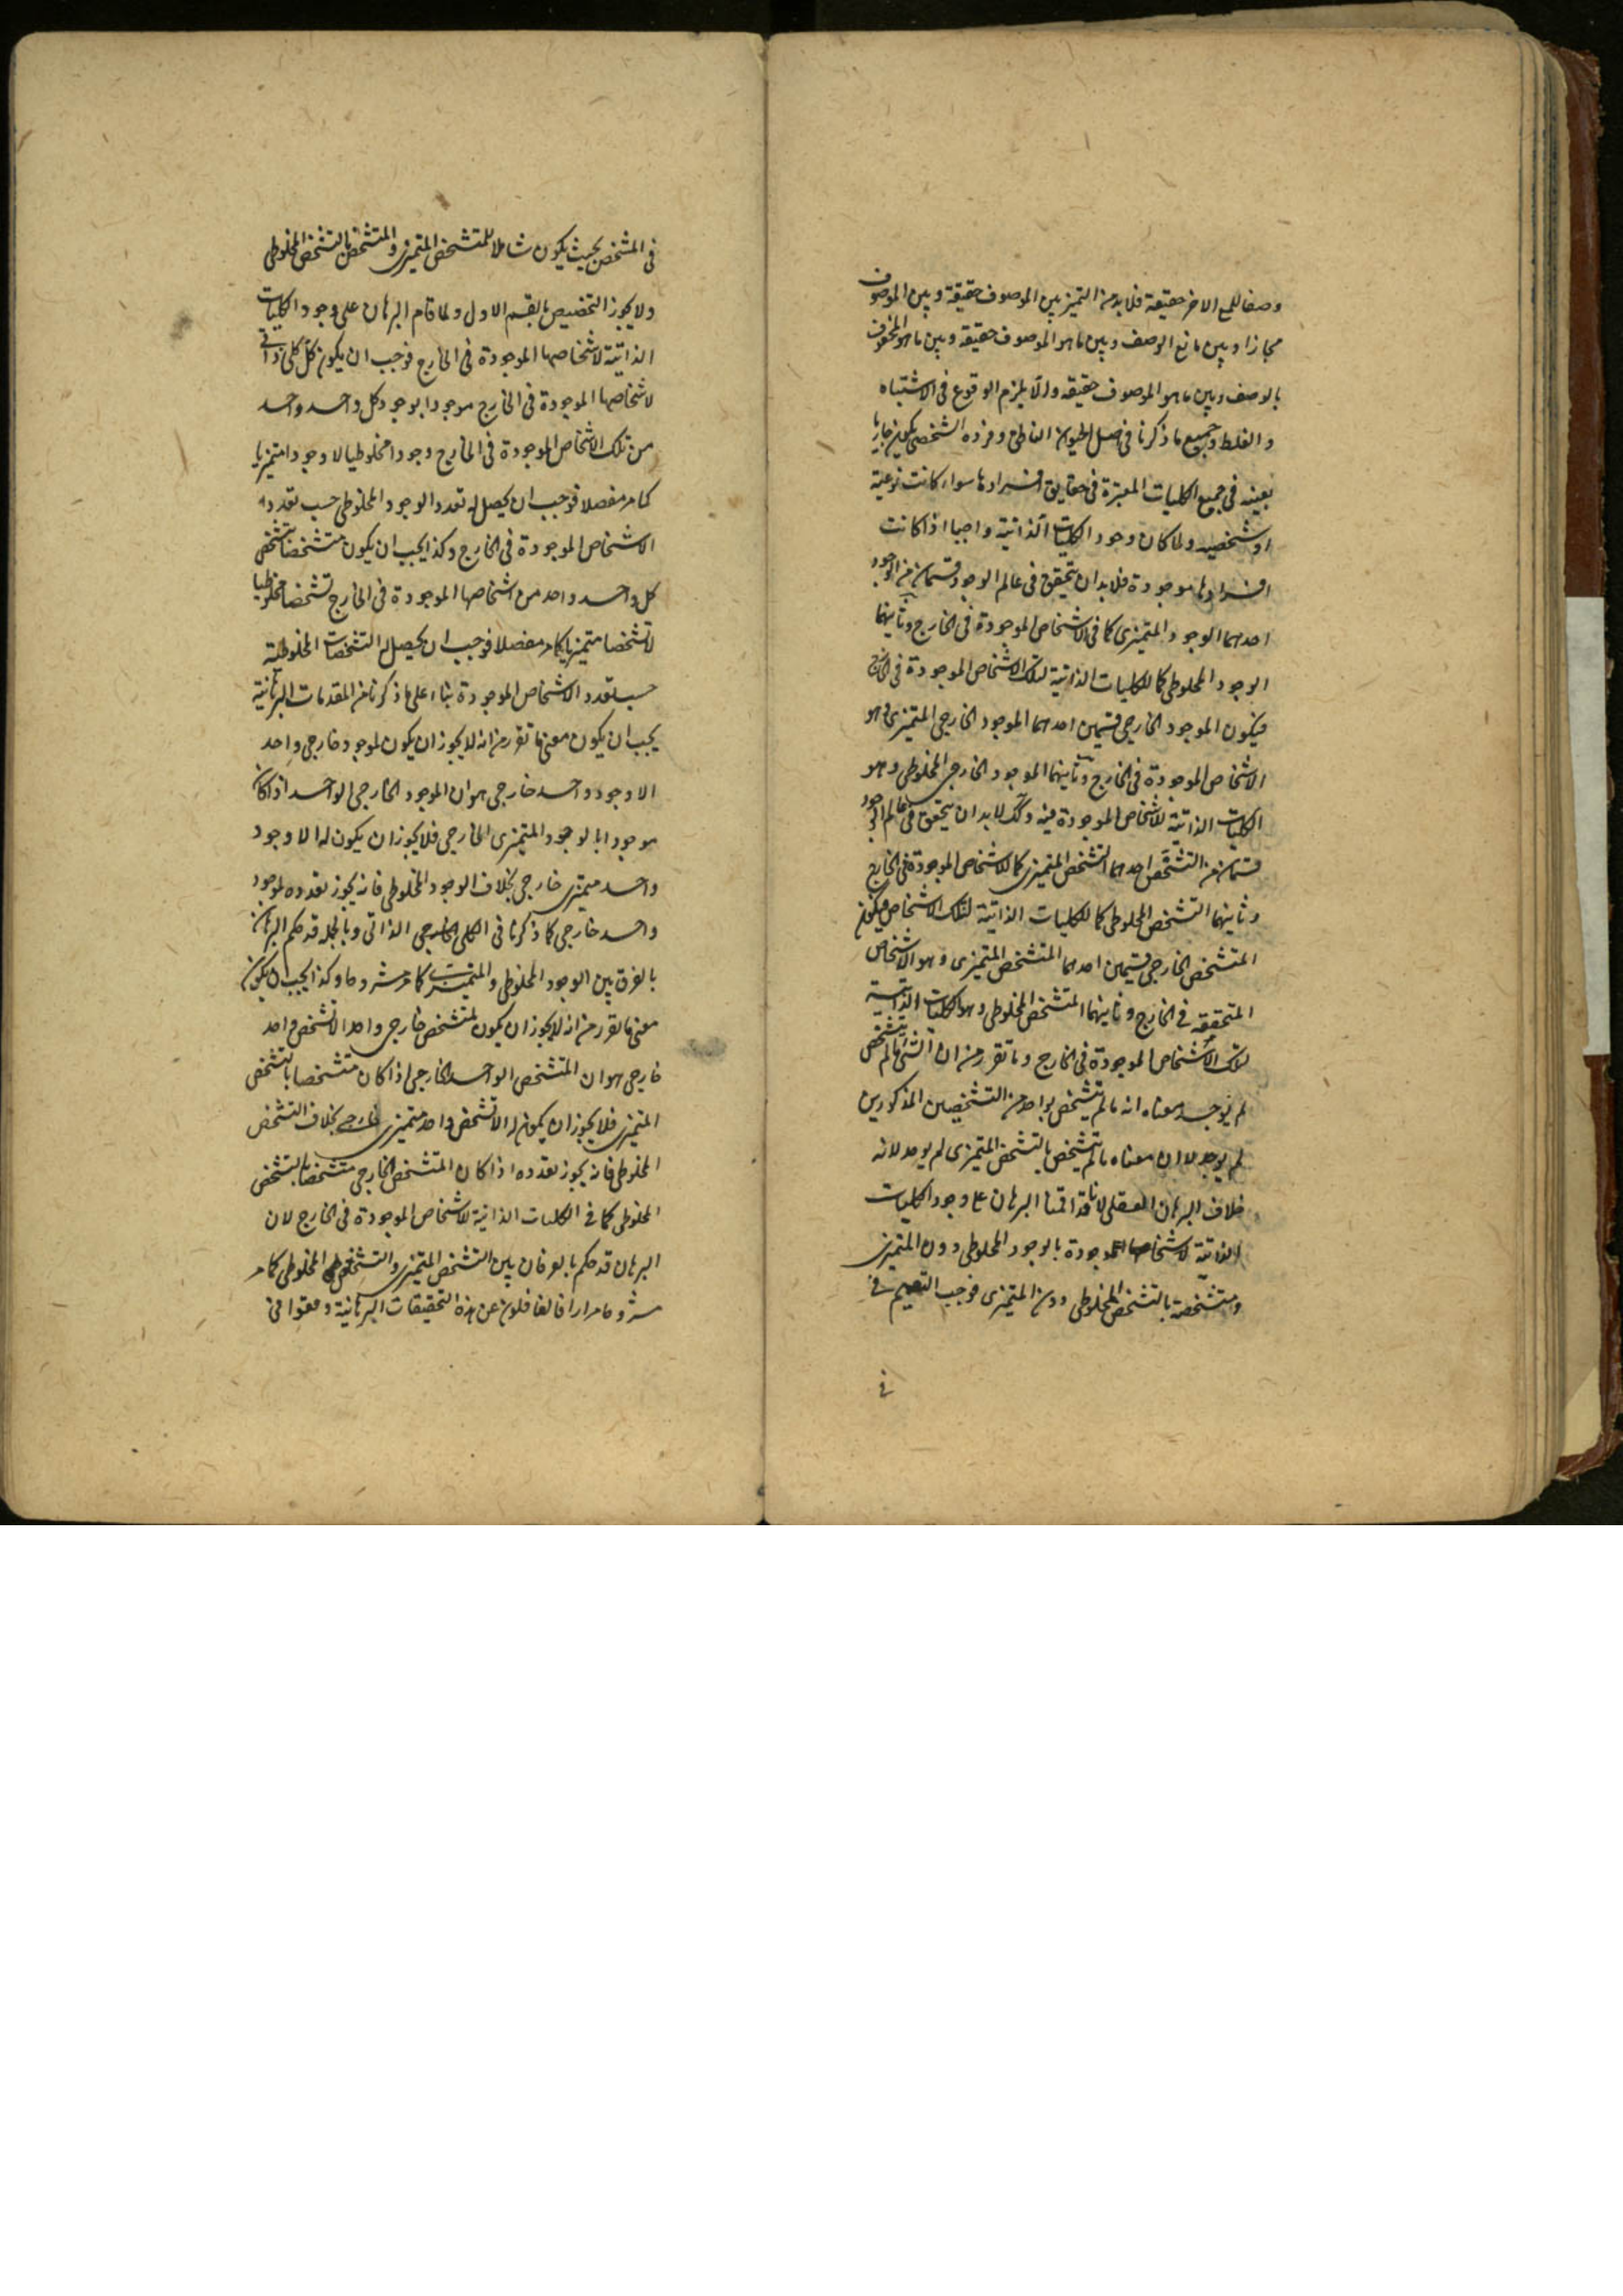 وصفا للمع الاخر حقيقة فلا بد من التميز بين الموصوف حقيقة وبين الموصوف
مجازا وبين مانع الوصف وبين ما هو الموصوف حقيقة وبين ما هو المخوف
بالوصف وبين ما هو الموصوف حقيقة والا يلزم الوقوع فى الاشتباه
والغلط وجميع ما ذكرنا فى فصل الحيوان الناطق وفرده الشخصى يكون جاريا
بعينه فى جميع الكليات المعتبرة فى حقايق افرادها سواء كانت نوعية
او شخصيه ولما كان وجود الكليات الذاتية واجبا اذا كانت
افرادها موجودة فلا بد ان يتحقق فى عالم الوجود قسمان من الوجود
احدهما الوجود المتميزى كما فى الاشخاص الموجودة فى الخارج وثانيهما
الوجود المخلوطى كما للكليات الذاتية لتلك الاشخاص الموجودة فى الخارج
فيكون الموجود الخارجى قسمين احدهما الموجود الخارجى المتميزى وهو
الاشخاص الموجودة فى الخارج وثانيهما الموجود الخارجى المخلوطى وهو
الكليات الذاتية للاشخاص الموجودة فيه وكك لا بد ان يتحقق فى عالم الوجود
قسمان من التشخص احدهما التشخص المتميزى كما للاشخاص الموجودة فى الخارج
وثانيهما التشخص المخلوطى كما للكليات الذاتية لتلك الاشخاص فيكون
المتشخص الخارجى قسمين احدهما المتشخص المتميزى وهو الاشخاص
المتحققه فى الخارج وثانيهما المتشخص المخلوطى وهو الكليات الذاتية
لتلك الاشخاص الموجودة فى الخارج وما تقرر من ان الشئ ما لم يتشخص
لم يوجد معناه انه ما لم يتشخص بواحد من التشخصين المذكورين
لم يوجد لا ان معناه ما لم يتشخص بالتشخص المتميزى لم يوجد لانه
خلاف البرهان العقلى لانا قد اقمنا البرهان على وجود الكليات
الذاتية لاشخاصها الموجودة بالوجود المخلوطى دون المتميزى
ومتشخصة بالتشخص المخلوطى دون المتميزى فوجب التعميم فى
فى
فى المتشخص بحيث يكون شاملا للمتشخص المتميزى والمتشخص بالتشخص المخلوطى
ولا يجوز التخصيص بالقسم الاول ولما قام البرهان على وجود الكليات
الذاتية لاشخاصها الموجودة فى الخارج فوجب ان يكون كل كلى ذاتى
لاشخاصها الموجودة فى الخارج موجودا بوجود كل واحد واحد
من تلك الاشخاص الموجودة فى الخارج وجودا مخلوطيا لا وجودا متميزيا
كما مر مفصلا فوجب ان يحصل له تعدد الوجود المخلوطى حسب تعدد
الاشخاص الموجودة فى الخارج وكذا يجب ان يكون متشخصا بتشخص
كل واحد واحد من اشخاصها الموجودة فى الخارج تشخصا مخلوطيا
لا تشخصا متميزيا كما مر مفصلا فوجب ان يحصل له التشخصات المخلوطية
حسب تعدد الاشخاص الموجودة بناء على ما ذكرنا من المقدمات البرهانية
يجب ان يكون معنى ما تقرر من انه لا يجوز ان يكون لموجود خارجى واحد
الا وجود واحد خارجى هو ان الموجود الخارجى الواحد اذا كان
موجودا بالوجود المتميزى الخارجى فلا يجوز ان يكون له الا وجود
واحد متميزى خارجى بخلاف الوجود المخلوطى فانه يجوز تعدده لموجود
واحد خارجى كما ذكرنا فى الكلى الخارجى الذاتى وبالجمله قد حكم البرهان
بالفرق بين الوجود المخلوطى والمتميزى كما مر مشروحا وكذا يجب ان يكون
معنى ما تقرر من انه لا يجوز ان يكون لمتشخص خارجى واحد الا تشخص واحد
خارجى هو ان المتشخص الواحد الخارجى اذا كان متشخصا بالتشخص
المتميزى فلا يجوز ان يكون له الا تشخص واحد متميزى خارجى بخلاف التشخص
المخلوطى فانه يجوز تعدده اذا كان المتشخص الخارجى متشخصا بالتشخص
المخلوطى كما فى الكليات الذاتية للاشخاص الموجودة فى الخارج لان
البرهان قد حكم بالفرقان بين التشخص المتميزى والتشخص المخلوطى كما مر
مشروحا مرارا فالغافلون عن هذه التحقيقات البرهانية وقعوا فى